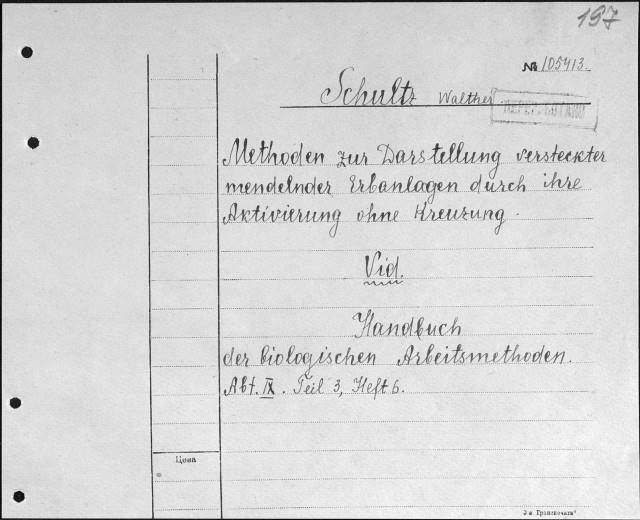 197
№ 105413.
Schultz Walther
Methoden zur Darstellung versteckter
mendelnder Erbanlagen durch ihre
Aktivierung ohne Kreuzung.
Vid.
Handbuch
der biologischen Arbeitsmethoden.
Abt. IX. Teil 3, Heft 6.
Цена